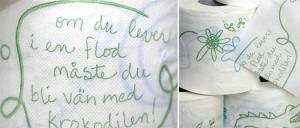 om du lever
i en flod
måste du
bli vän med
krokodilen!
om du lever
i en flod
måste du
bli vän med